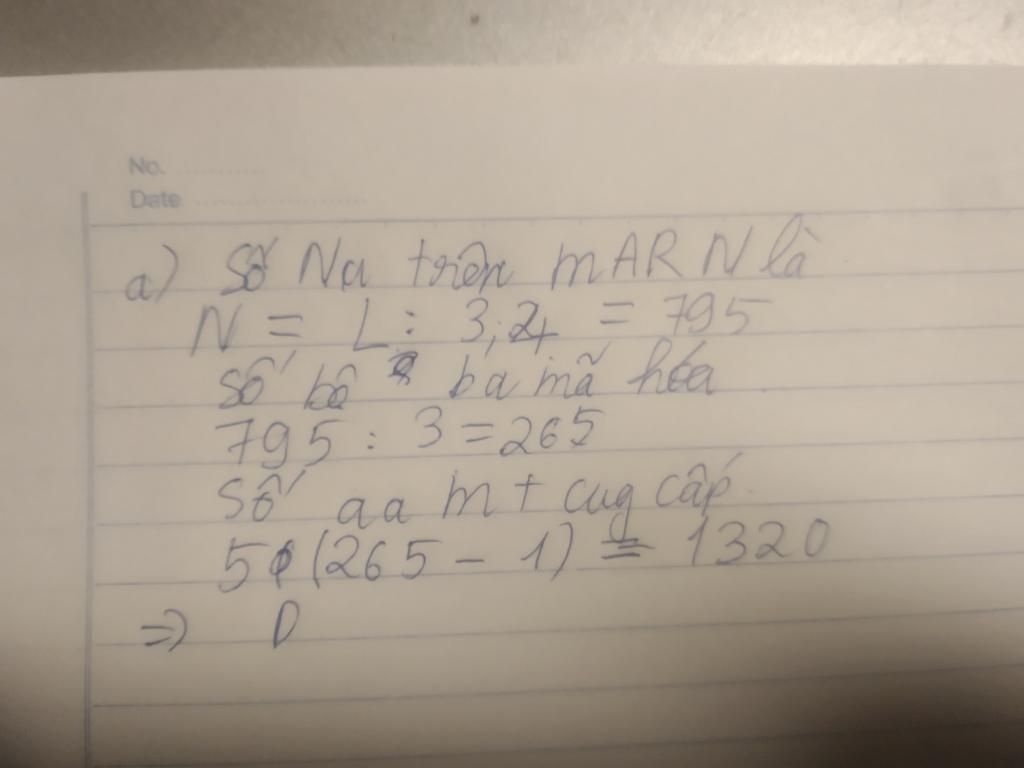 No. ............
Date ........................
a) Số Nu trên mARN là
N = L : 3,4 = 795
Số bộ ba mã hóa
795 : 3 = 265
Số aa mt cug cấp.
5 (265 - 1) = 1320
=> D